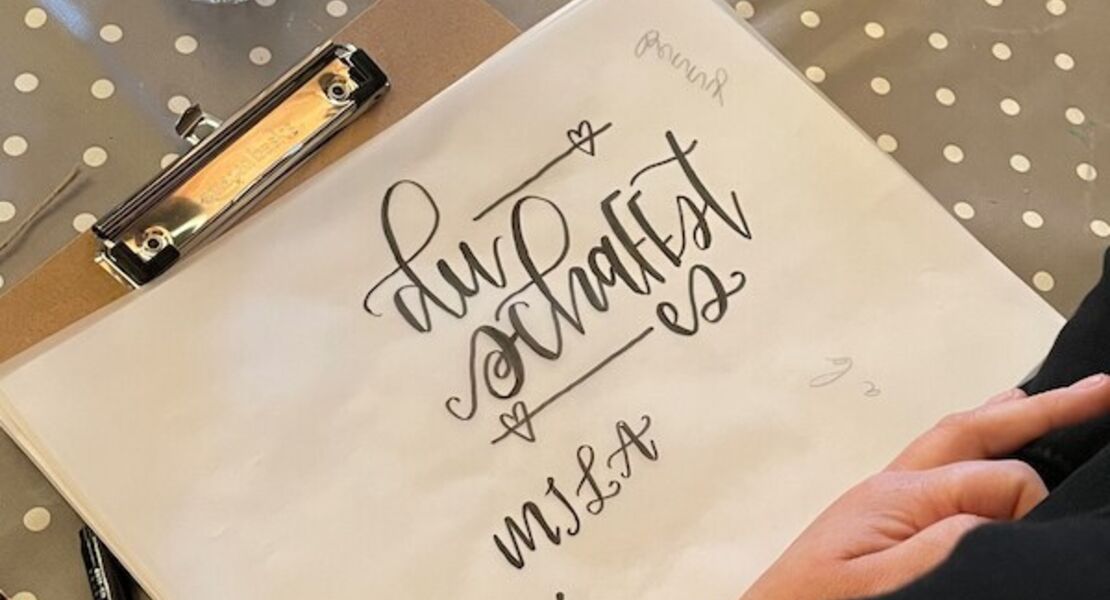 du
schaffst
es
MILA